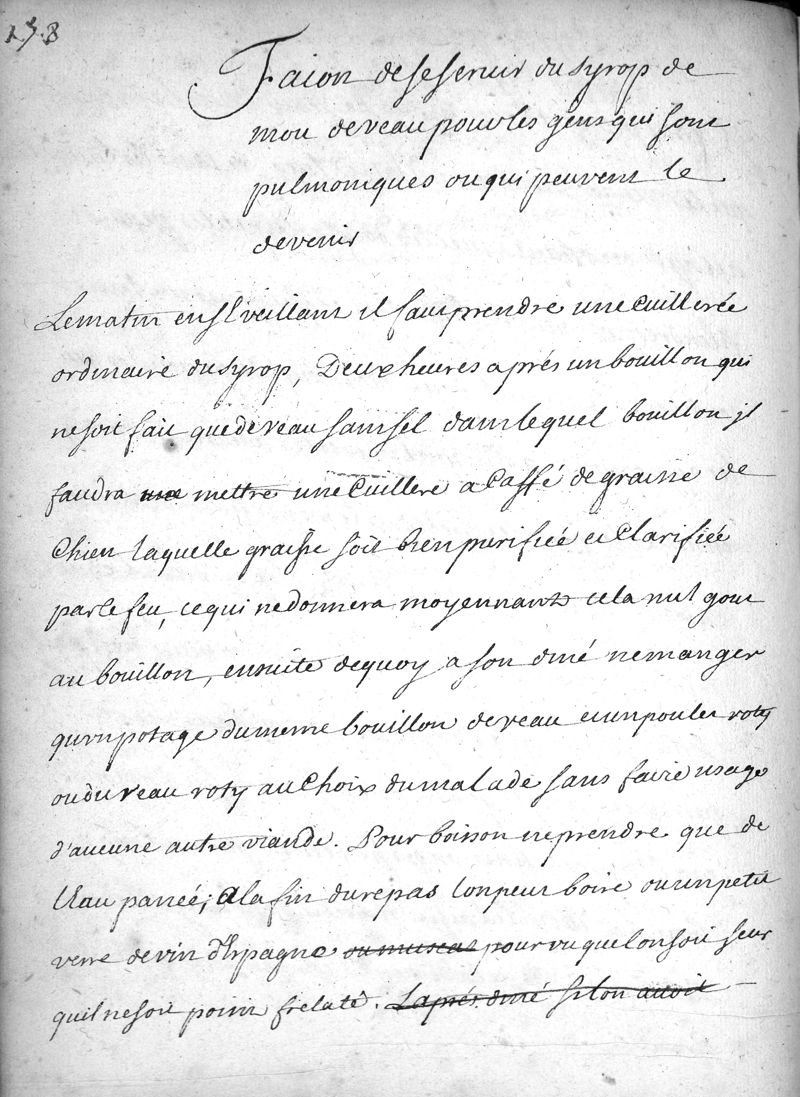 158
Facon de se servir du syrop de
mou de veau pour les gens qui sont
pulmoniques ou qui peuvent le
devenir
Le matin en s'Eveillant il faut prendre une Cuillerée
ordinaire du syrop, Deux heures aprés un bouillon qui
ne soit fait que de veau sans sel dans lequel bouillon jl
faudra mettre une Cuillere a Caffé de graisse de
Chien laquelle graisse soit bien purifiée et Clarifiée
par le feu, ce qui ne donnera moyennant cela nul gout
au bouillon, ensuite dequoy a son diné ne manger
qu'un potage du meme bouillon de veau et un poulet roty
ou du veau roty au Choix du malade sans faire usage
d'aucune autre viande. Pour boisson ne prendre que de
l'Eau panée; a la fin du repas l'on peut boire ou un petit
verre de vin d'Espagne ou muscat pourvu que l'on soit seur
qu'il ne soit point frelaté. L'aprés diné si l'on avoit